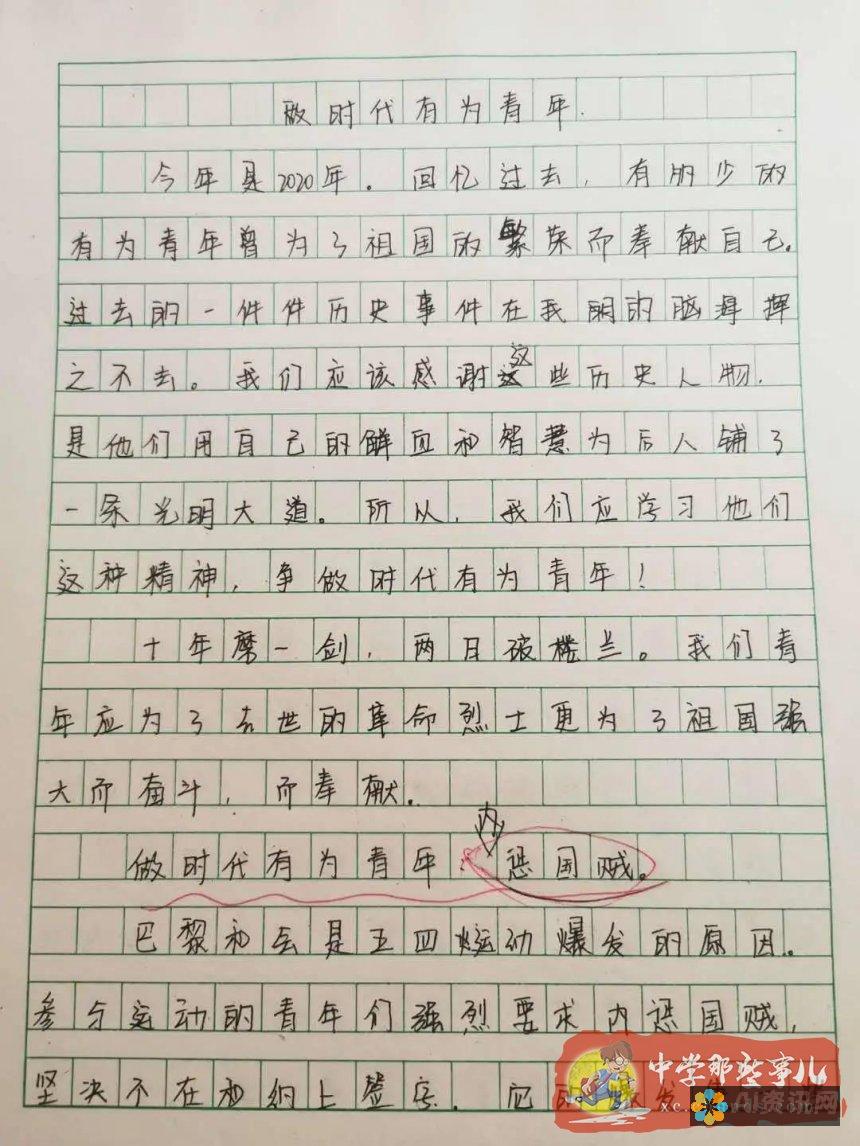 做时代有为青年.
今年是2020年。回忆过去，有的少的
有为青年曾为了祖国的繁荣而奉献自己。
过去的一件件历史事件在我的脑海挥
之不去。我们应该感谢这些历史人物，
是他们用自己的鲜血和智慧为后人铺了
一条光明大道。所以，我们应学习他们
这种精神，争做时代有为青年！
十年磨一剑，两日破楼兰。我们青
年应为了去世的革命烈士更为了祖国强
大而奋斗，而奉献．
做时代有为青年：内惩国贼。
巴黎和会是五四运动爆发的原因。
参与运动的青年们强烈要求内惩国贼，
坚决不在和约上签字．
中学那些事儿
AI资讯网